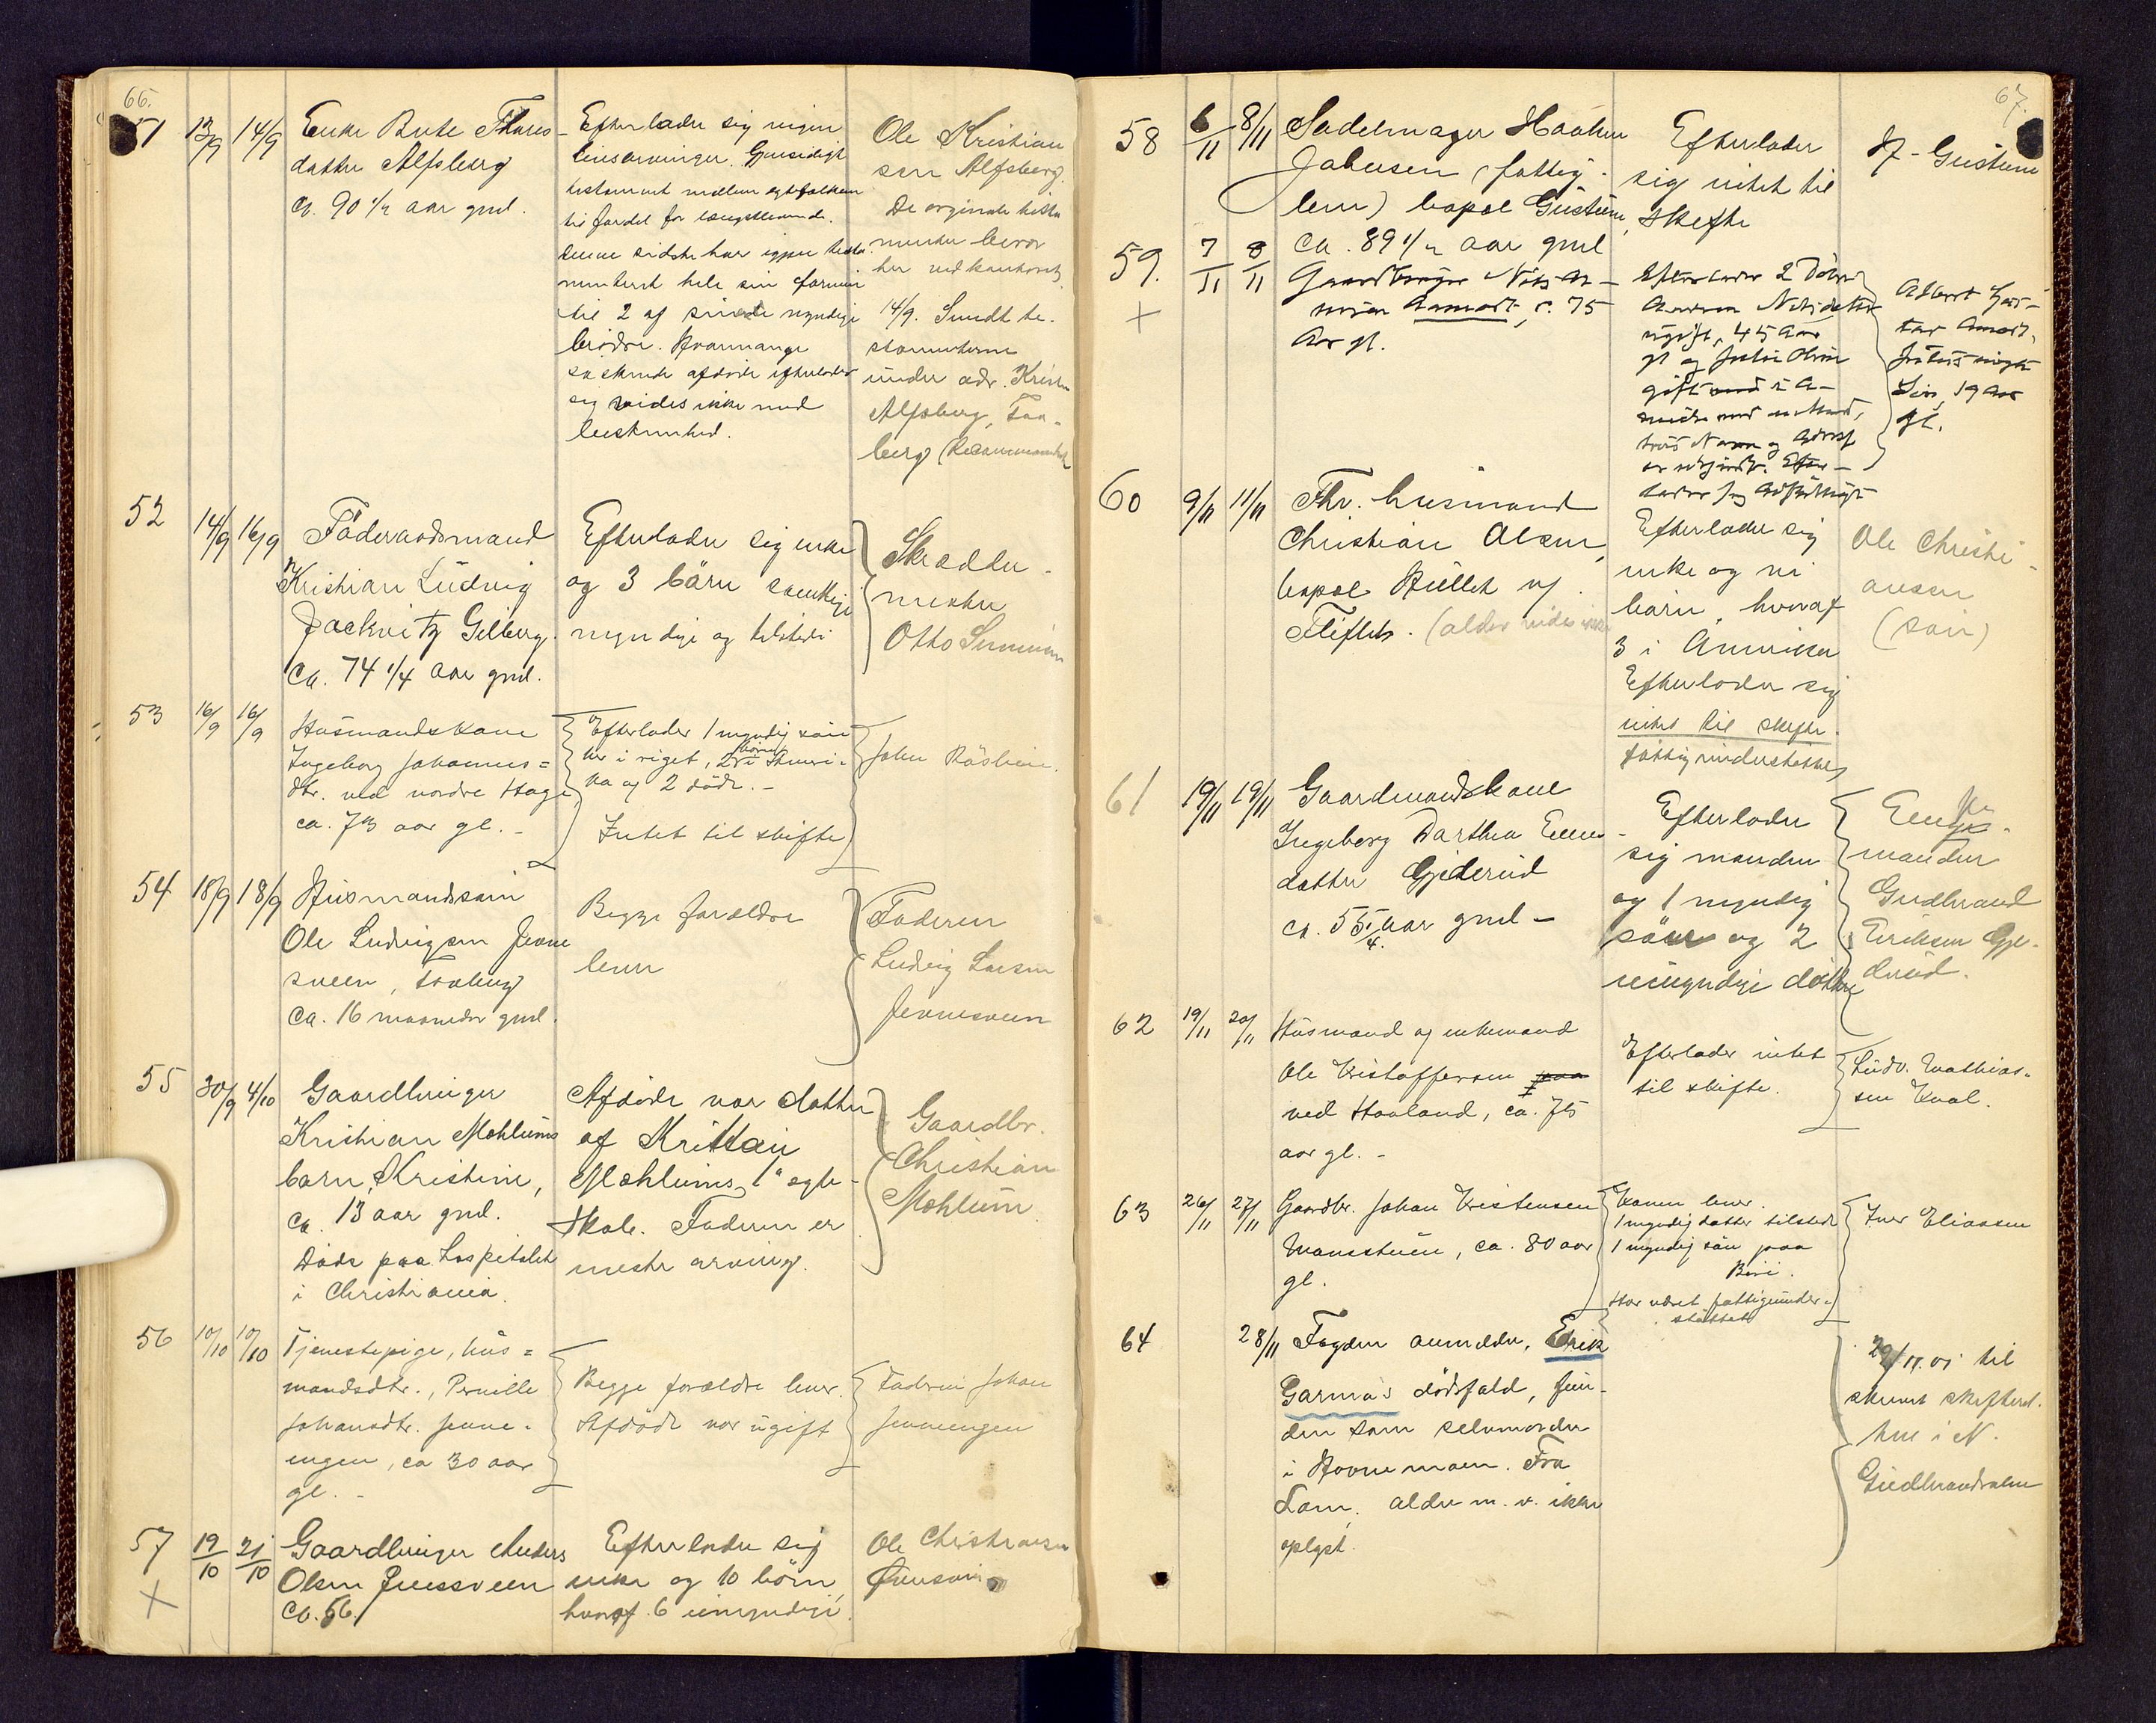 66.
51 13/9 14/9
Enke Berte Thores-
datter Alfsberg
ca. 90 1/2 aar gml.
Efterlader sig ingen
livsarvinger. Gjensidigt
testament mellem egtefolkene
til fordel for længstlevende.
Denne sidste har igjen testa-
menteret hele sin formue
til 2 af sine myndige
brødre. Hvormange
søskende afdøde efterlader
sig vides ikke med
bestemthed.
Ole Kristian
sen Alfsberg.
De orginale testa
menter beror
her ved kontoret
14/9. Sendt te-
stamenterne
under adr. Kristen
Alfsberg, Faa-
berg (Recommanderet
52 14/9 16/9
Föderaadsmand
Kristian Ludvig
Jackwitz Gilberg.
ca. 74 1/4 aar gml.
Efterlader sig enke
og 3 börn samtlige
myndige og tilstede
Skrædder-
mester
Otto Simensen
53 16/9 16/9
Husmandskone
Ingeborg Johannes=
dtr. ved nordre Hage
ca. 73 aar gl. -
Efterlader 1 myndig sön
her i riget, 2 börn i Ameri-
ka og 2 döde. -
Intet til skifte
John Råsbein.
54 18/9 18/9
Husmandssøn
Ole Ludvigsen Jevne
sveen, Faaberg
ca. 16 maaneder gml.
Begge forældre
lever
Faderen
Ludvig Larsen
Jevnesveen
55 30/9 4/10
Gaardbruger
Kristian Mæhlums
barn, Kristine,
ca. 13 aar gml.
Döde paa hospitalet
i Christiania.
Afdøde var datter
af Kristian
Mæhlums 1ste egte-
skab. Faderen er
neste arving.
Gaardbr.
Christian
Mæhlum
56 10/10 10/10
Tjenestepige, hus=
mandsdtr., Pernille
Johansdtr. Jevne-
engen, ca 30 aar
gl. -
Begge forældre lever.
Afdöde var ugift
Faderen Johan
Jevneengen
57 19/10 21/10
×
Gaardbruger Anders
Olsen Jevnesveen
ca. 56
Efterlader sig
enke og 10 börn,
hvoraf 6 umyndige.
Ole Christiansen
67.
58 6/11 8/11
Sadelmager Haaken
Jakobsen (fattig-
lem) bopæl Gustum,
ca. 89 1/2 aar gml
Efterlader
sig intet til
skefte
H. Gustum
59. 7/11 8/11
×
Gaardbruger Nils An-
ca. 75
Aar gl.
Efterlader 2 Døtre
Nilsdatter
ugift, 45 Aar
gl og
gift i A-
Navn og Adresse
Albert Gus-
tav
Søn, 19 Aar
gl.
60 9/11 11/11
Fhv. husmand
Christian Olsen,
bopæl Hullet
Fliflet. (alder vides ikke
Efterlader sig
enke og ni
børn, hvoraf
3 i Amerika
Efterlader sig
intet til skefte.
fattigunderstöttet
Ole Christi-
ansen
(søn)
61 19/11 19/11
Gaardmandskone
Ingeborg Darthea Even-
datter Gjederud
ca. 55 1/4 aar gml -
Efterlader
sig manden
og 1 myndig
søn og 2
umyndige døttre
Enke-
manden
Gudbrand
Eriksen Gje-
derud.
62 19/11 20/11
Husmand og enkemand
Ole Kristoffersen paa
ved Haaland, ca. 75
aar gl. -
Efterlader intet
til skifte.
Ludv. Mathias-
sen Kval.
63 26/11 27/11
Gaardbr. Johan Kristensen
Mansstuen, ca. 80 aar
gl.
Konen lever.
1 myndig datter tilstede
1 myndig sön paa
Biri.
Har været fattigunder-
stöttet
Iver Eliassen
64 28/11
Fogden anmelder, Erik
Garmo's dødsfald, fun-
den som selvmorder
i Hovnemoen. Fra
Lom, alder m. v. ikke
oplyst.
29/11. 01 til
skrevet skefteret.
ten i N.
Gudbrandsdalen